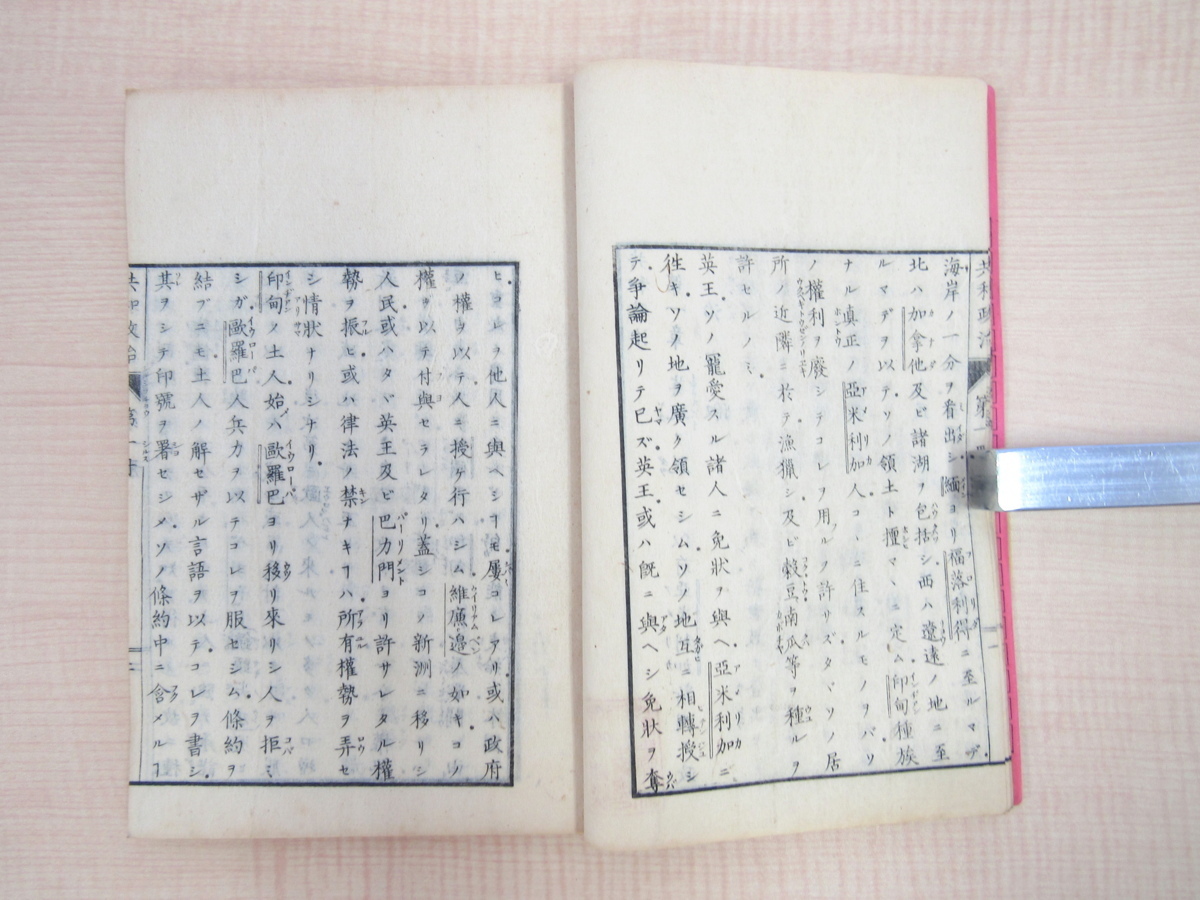 共和政治
第一
海岸ノ一分ヲ看出シ緬ヨリ福落利得ニ至ルマデ
北ハ加拿他及ビ諸湖ヲ包括シ西ハ遼遠ノ地ニ至
ルマデヲ以テソノ領土ト擅マヽニ定ム印甸種族
ナル真正ノ亞米利加人コヽニ住スルモノヲバソ
ノ權利ヲ廢シテコレヲ用ルヲ許サズタヾソノ居
所ノ近隣ニ於テ漁獵シ及ビ穀豆南瓜等ヲ種ルヲ
許セルノミ
英王ソノ寵愛スル諸人ニ免狀ヲ與ヘ亞米利加ニ
徃キソノ地ヲ廣ク領セシムソノ地互ニ相轉授シ
テ爭論起リテ已ズ英王或ハ旣ニ與ヘシ免狀ヲ奪
ヒコレヲ他人ニ與ヘシヿモ屢コレアリ或ハ政府
ノ權ヲ以テ人ニ授ケ行ハシム維廉邊ノ如キコノ
權ヲ以テ付與セラレタリ蓋シコノ新洲ニ移リシ
人民或ハタヾ英王及ビ巴力門ヨリ許サレタル權
勢ヲ振ヒ或ハ律法ノ禁ナキヿハ所有權勢ヲ弄セ
シ情狀ナリシナリ
印甸ノ土人始メハ歐羅巴ヨリ移リ來リシ人ヲ拒ミ
シガ歐羅巴人兵力ヲ以テコレヲ服セシム條約ヲ
結ブニモ土人ノ解セザル言語ヲ以テコレヲ書シ
其ヲシテ印號ヲ署セシメソノ條約中ニ含メルヿ
共和政治